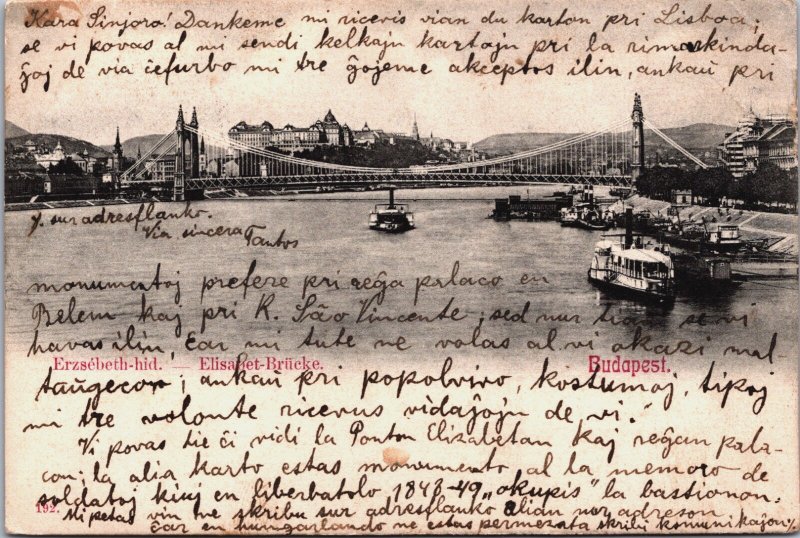 Kara Sinjoro! Dankeme mi ricevis vian du karton pri Lisboa;
se vi povas al mi sendi kelkajn kartojn pri la rimarkinda-
ĵoj de via ĉefurbo mi tre ĝojeme akceptos ilin, ankaŭ pri
y. sur adresflanko.
Via sincera Tantos
monumentoj prefere pri reĝa palaco en
Belem kaj pri K. São Vincente; sed nur tiam se vi
havas ilin, ĉar mi tute ne volas al vi okazi mal-
Erzsébeth-hid. — Elisabet-Brücke. Budapest.
taŭgecon; ankaŭ pri popolvivo, kostumoj, tipoj
mi tre volonte ricevus vidaĵojn de vi."
Vi povas tie ĉi vidi la Ponton Elizabetan kaj reĝan pala-
con; la alia karto estas monumento al la memoro de
soldatoj kiuj en liberbatolo 1848-49 „okupis" la bastionon.
192. Mi petas vin ne skribu sur adresflanko alian nur adreson
ĉar en hungarlando ne estas permezata skribi komunikaĵon y.